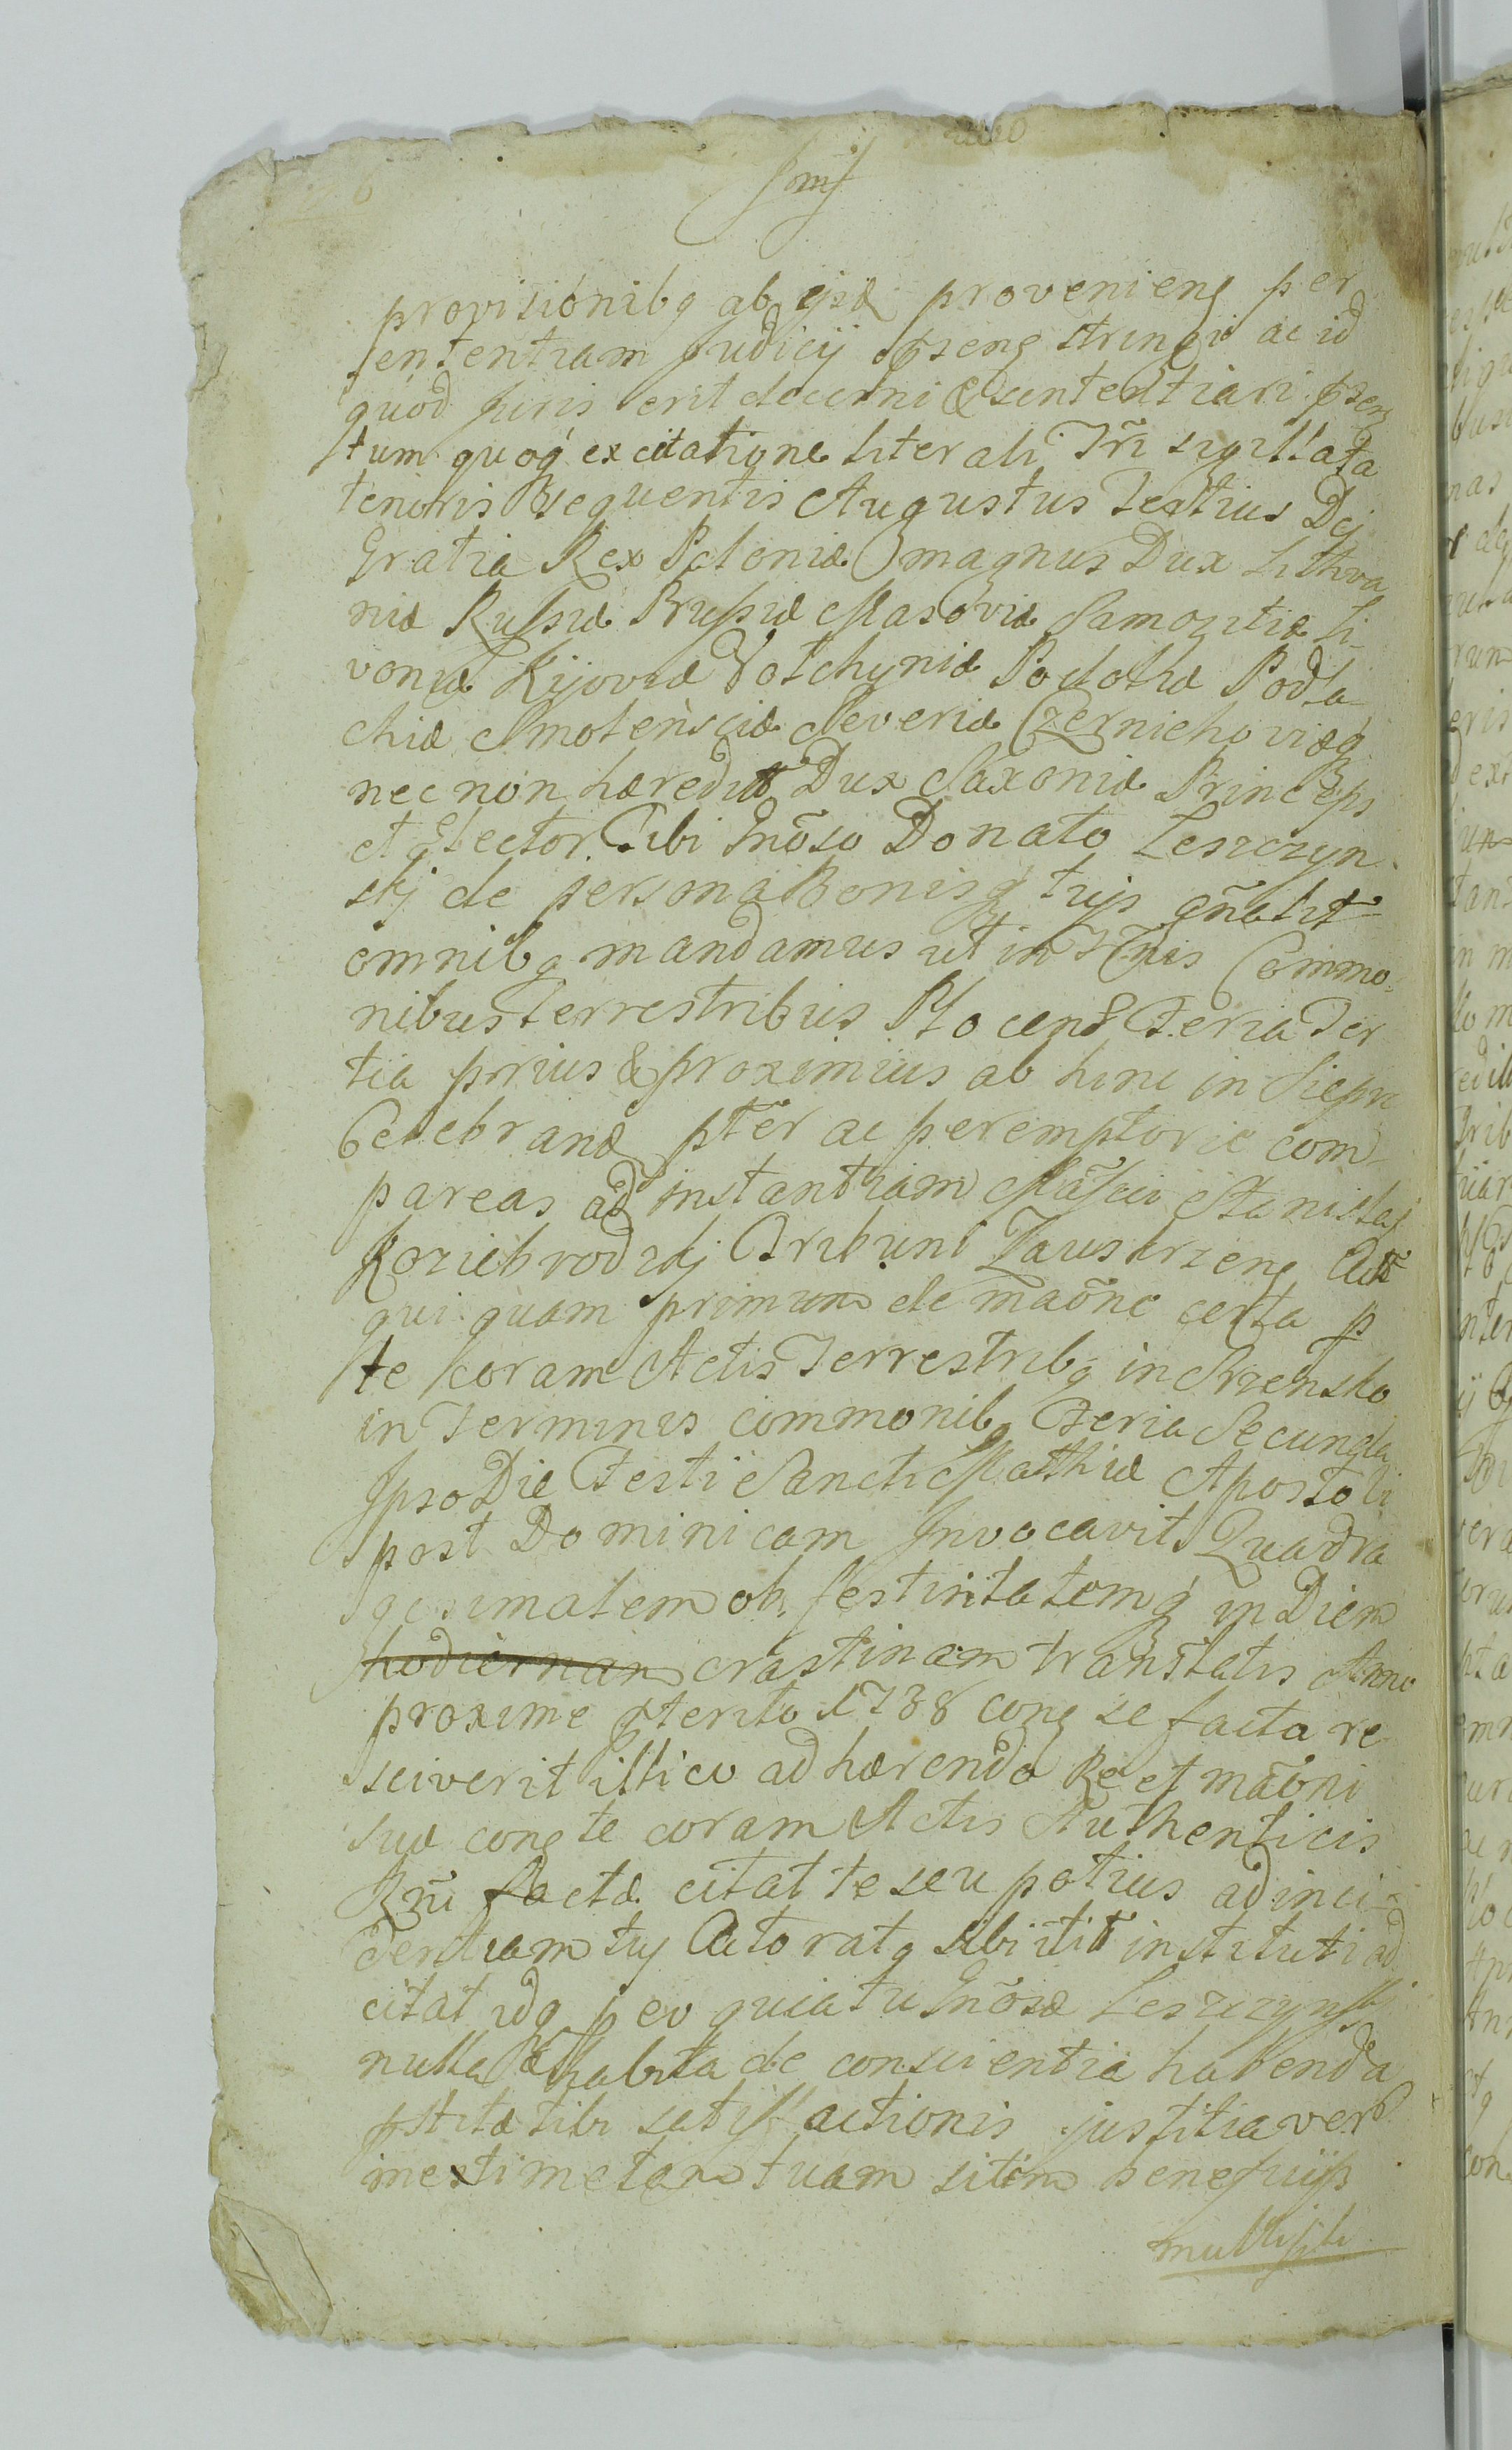 provisionibq ab ijsd provenieng per
sententiam Judicij pseng stringi ac id
quod juris erit decerni & sententiari pseng
tum quoq excitatione literali Tri sigillata
tenoris sequentis Augustus Tertius Dei
Gratia Rex Poloniæ magnus Dux Lithva
niæ Russiæ Prussiæ Masoviæ Samogitiæ Li-
voniæ Kijoviæ Volchyniæ Podoliæ Podla-
chiæ Smolensciæ Severiæ Czernichoviæq
nec non hæredit Dux Saxoniæ Princeps
et Elector. Tibi Gnõso Donato Leszczyn-
skj de persona Bonisq tuis gñalit
omnibq mandamus ut in Tñis Commo-
nibus Terrestribus Plocens Feria Ter
tia prius & proximius ab hinc in Sierpc
Celebrand pter ac peremptorie com-
pareas ad instantiam Mãfici Stanislaj
Koziebrodzkj Tribuni Zauskrzeng Act
qui quam primum de mãone certa p
te coram Actis Terrestribq in Srzensko
in Terminis commonibq Feria Secunda
Ipso Die Festi Sancti Matthiæ Apostoli
post Dominicam Invocavit Quadra
gesimalem ob festivitatemq in Diem
hodiernam crastinam translatis Anno
proxime pterito 1738 cong se facta re
sciverit illico adhærendo Re et mãoni
suæ cong te coram Actis Authenticis
Rñi factæ citat te seu potius ad inci-
dentiam tuj Actoratq sibi itit instituti ad
citat idq p eo quia tu Gnõse Leszczynskj
nulla habita de conscientia habenda
pstitæ tibi satisfactionis justitia vero
inextimetam tuam sitim beneficijs
multisibi